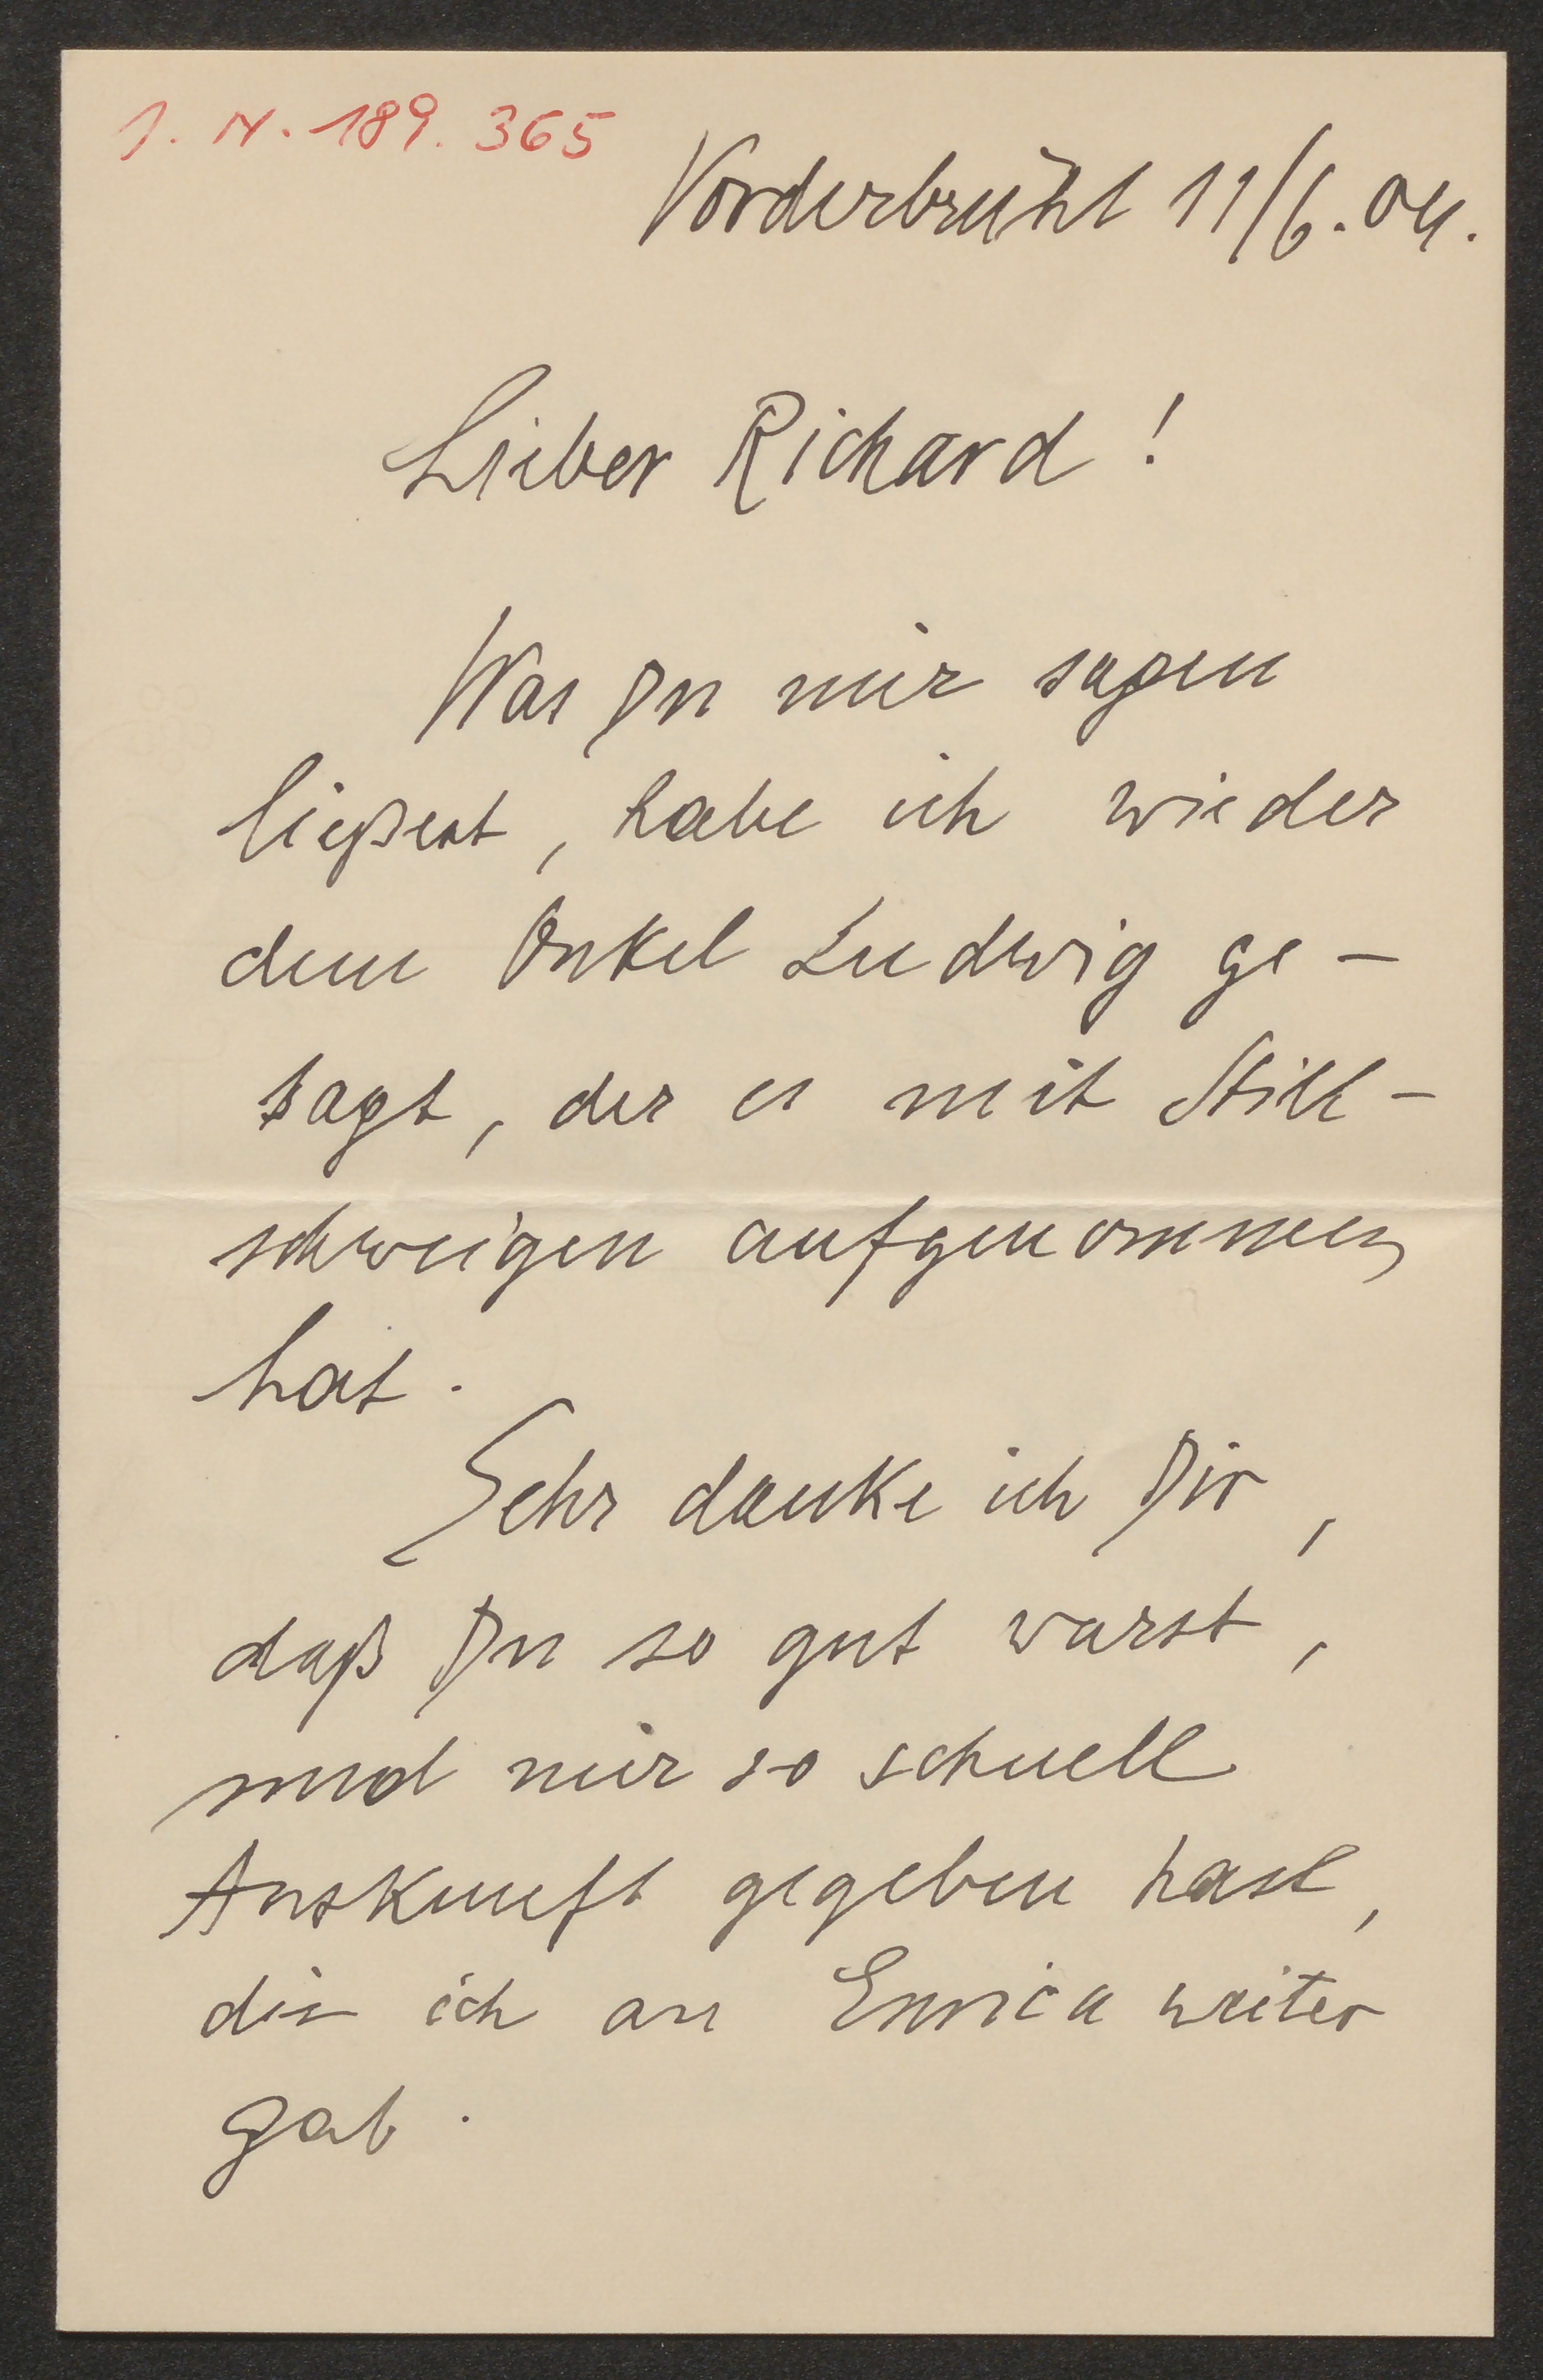 J. N. 189.365
Vorderbrühl 11/6.04.
Lieber Richard!
Was Du mir sagen
ließest, habe ich wieder
dem Onkel Ludwig ge-
sagt, der es mit Still-
schweigen aufgenommen
hat.
Sehr danke ich Dir,
daß Du so gut warst,
und mir so schnell
Auskunft gegeben hast,
die ich an Enrica weiter
gab.